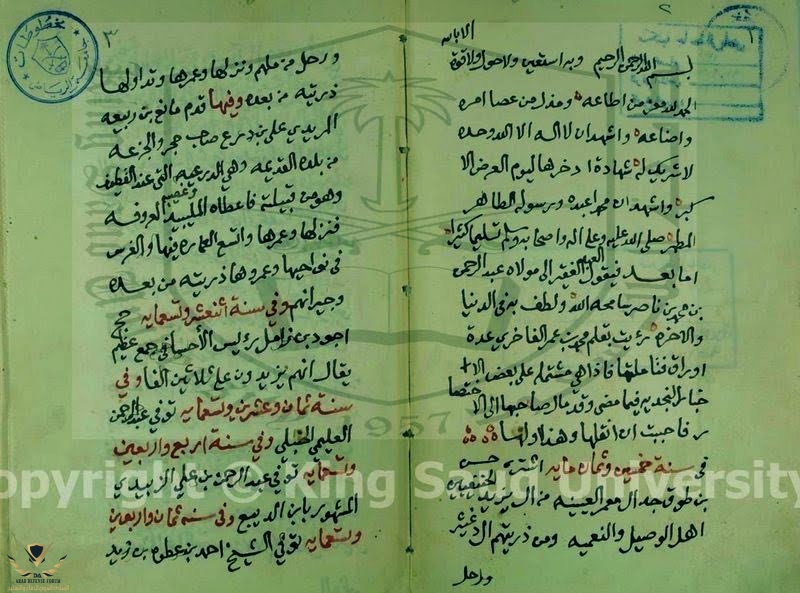 بسم الله الرحمن الرحيم وبه استعين ولاحول ولاقوة
الابالله
الحمد لله معز من اطاعه ومذل من عصا امره
واضاعه واشهد ان لا اله الا الله وحده
لاشريك له شهادة ادخرها ليوم العرض الا
كبر واشهد ان محمدا عبده ورسوله الطاهر
المطهر صلى الله عليه وعلى اله واصحابه وسلم تسليما كثيرا
اما بعد فيقول العبد الفقير الى مولاه عبد الرحمن
بن محمد بن ناصر سامحه الله ولطف به في الدنيا
والاخره رئيت بقلم محمد بن عمر الفاخري عدة
اوراق فتاملتها فاذا هي مشتمله على بعض الا
خبار النجديه فيما مضى وقد مال صاحبها الى الاختصا
ر فاحببت ان انقلها وهذا اولها
في سنة خمسين وثمان مايه اشترى حسن
بن طوق جد ال معمر العيينه من ال يزيد الحنفيين
اهل الوصيل والنعميه ومن ذريتهم ال دغيثر
ورحل
٣
ورحل من ملهم ونزلها وعمرها وتداولها
ذريته من بعده وفيها قدم مانع بن ربيعه
المريدي على بن درع صاحب حجر والجزعه
من بلده القديمه وهي الدرعيه التي عند القطيف
وهو من قبيلته فاعطاه المليبيد وغصيبه المعروفه
فنزلها وعمرها واتسع العماره فيها والغرس
في نواحيها وعمروها ذريته من بعده
وجيرانهم وفي سنة اثنعشر وتسعمايه حج
اجود بن زامل رئيس الأحسا في جمع عظيم
يقال انهم يزيدون على ثلاثين الفا وفي
سنة ثمان وعشرين وتسعمايه توفي عبد الرحمن
العليمي الحنبلي وفي سنة اربع واربعين
وتسعمايه توفي عبد الرحمن بن علي الزبيدي
المشهور بابن الديبع وفي سنه ثمان واربعين
وتسعمايه توفي الشيخ احمد بن عطوه بن زيد
مخطوطات
1957
Copyright © King Saud University
ARAB DEFENSE FORUM